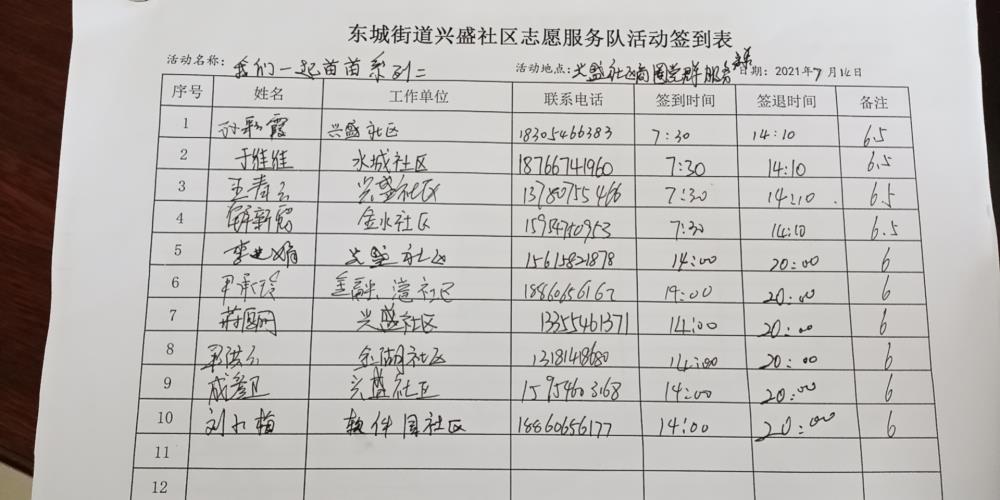 东城街道兴盛社区志愿服务队活动签到表
活动名称：我们一起苗苗系列二 活动地点：兴盛社区商圈党群服务 日期：2021年7月14日
序号 姓名 工作单位 联系电话 签到时间 签退时间 备注
1 孙彩霞 兴盛社区 18305466383 7:30 14:10 6.5
2 于佳佳 水城社区 18766741960 7:30 14:10 6.5
3 王春云 兴盛社区 13780755466 7:30 14:10 6.5
4 新霞 金水社区 7:30 14:10 6.5
5 李 娟 兴盛社区 15615821878 14:00 20:00 6
6 尹承玲 金融港社区 18860656167 14:00 20:00 6
7 蒋丽丽 兴盛社区 13355461371 14:00 20:00 6
8 金湖社区 14:00 20:00 6
9 成 卫 兴盛社区 15954603168 14:00 20:00 6
10 刘小梅 软件园社区 18860656177 14:00 20:00 6
11
12